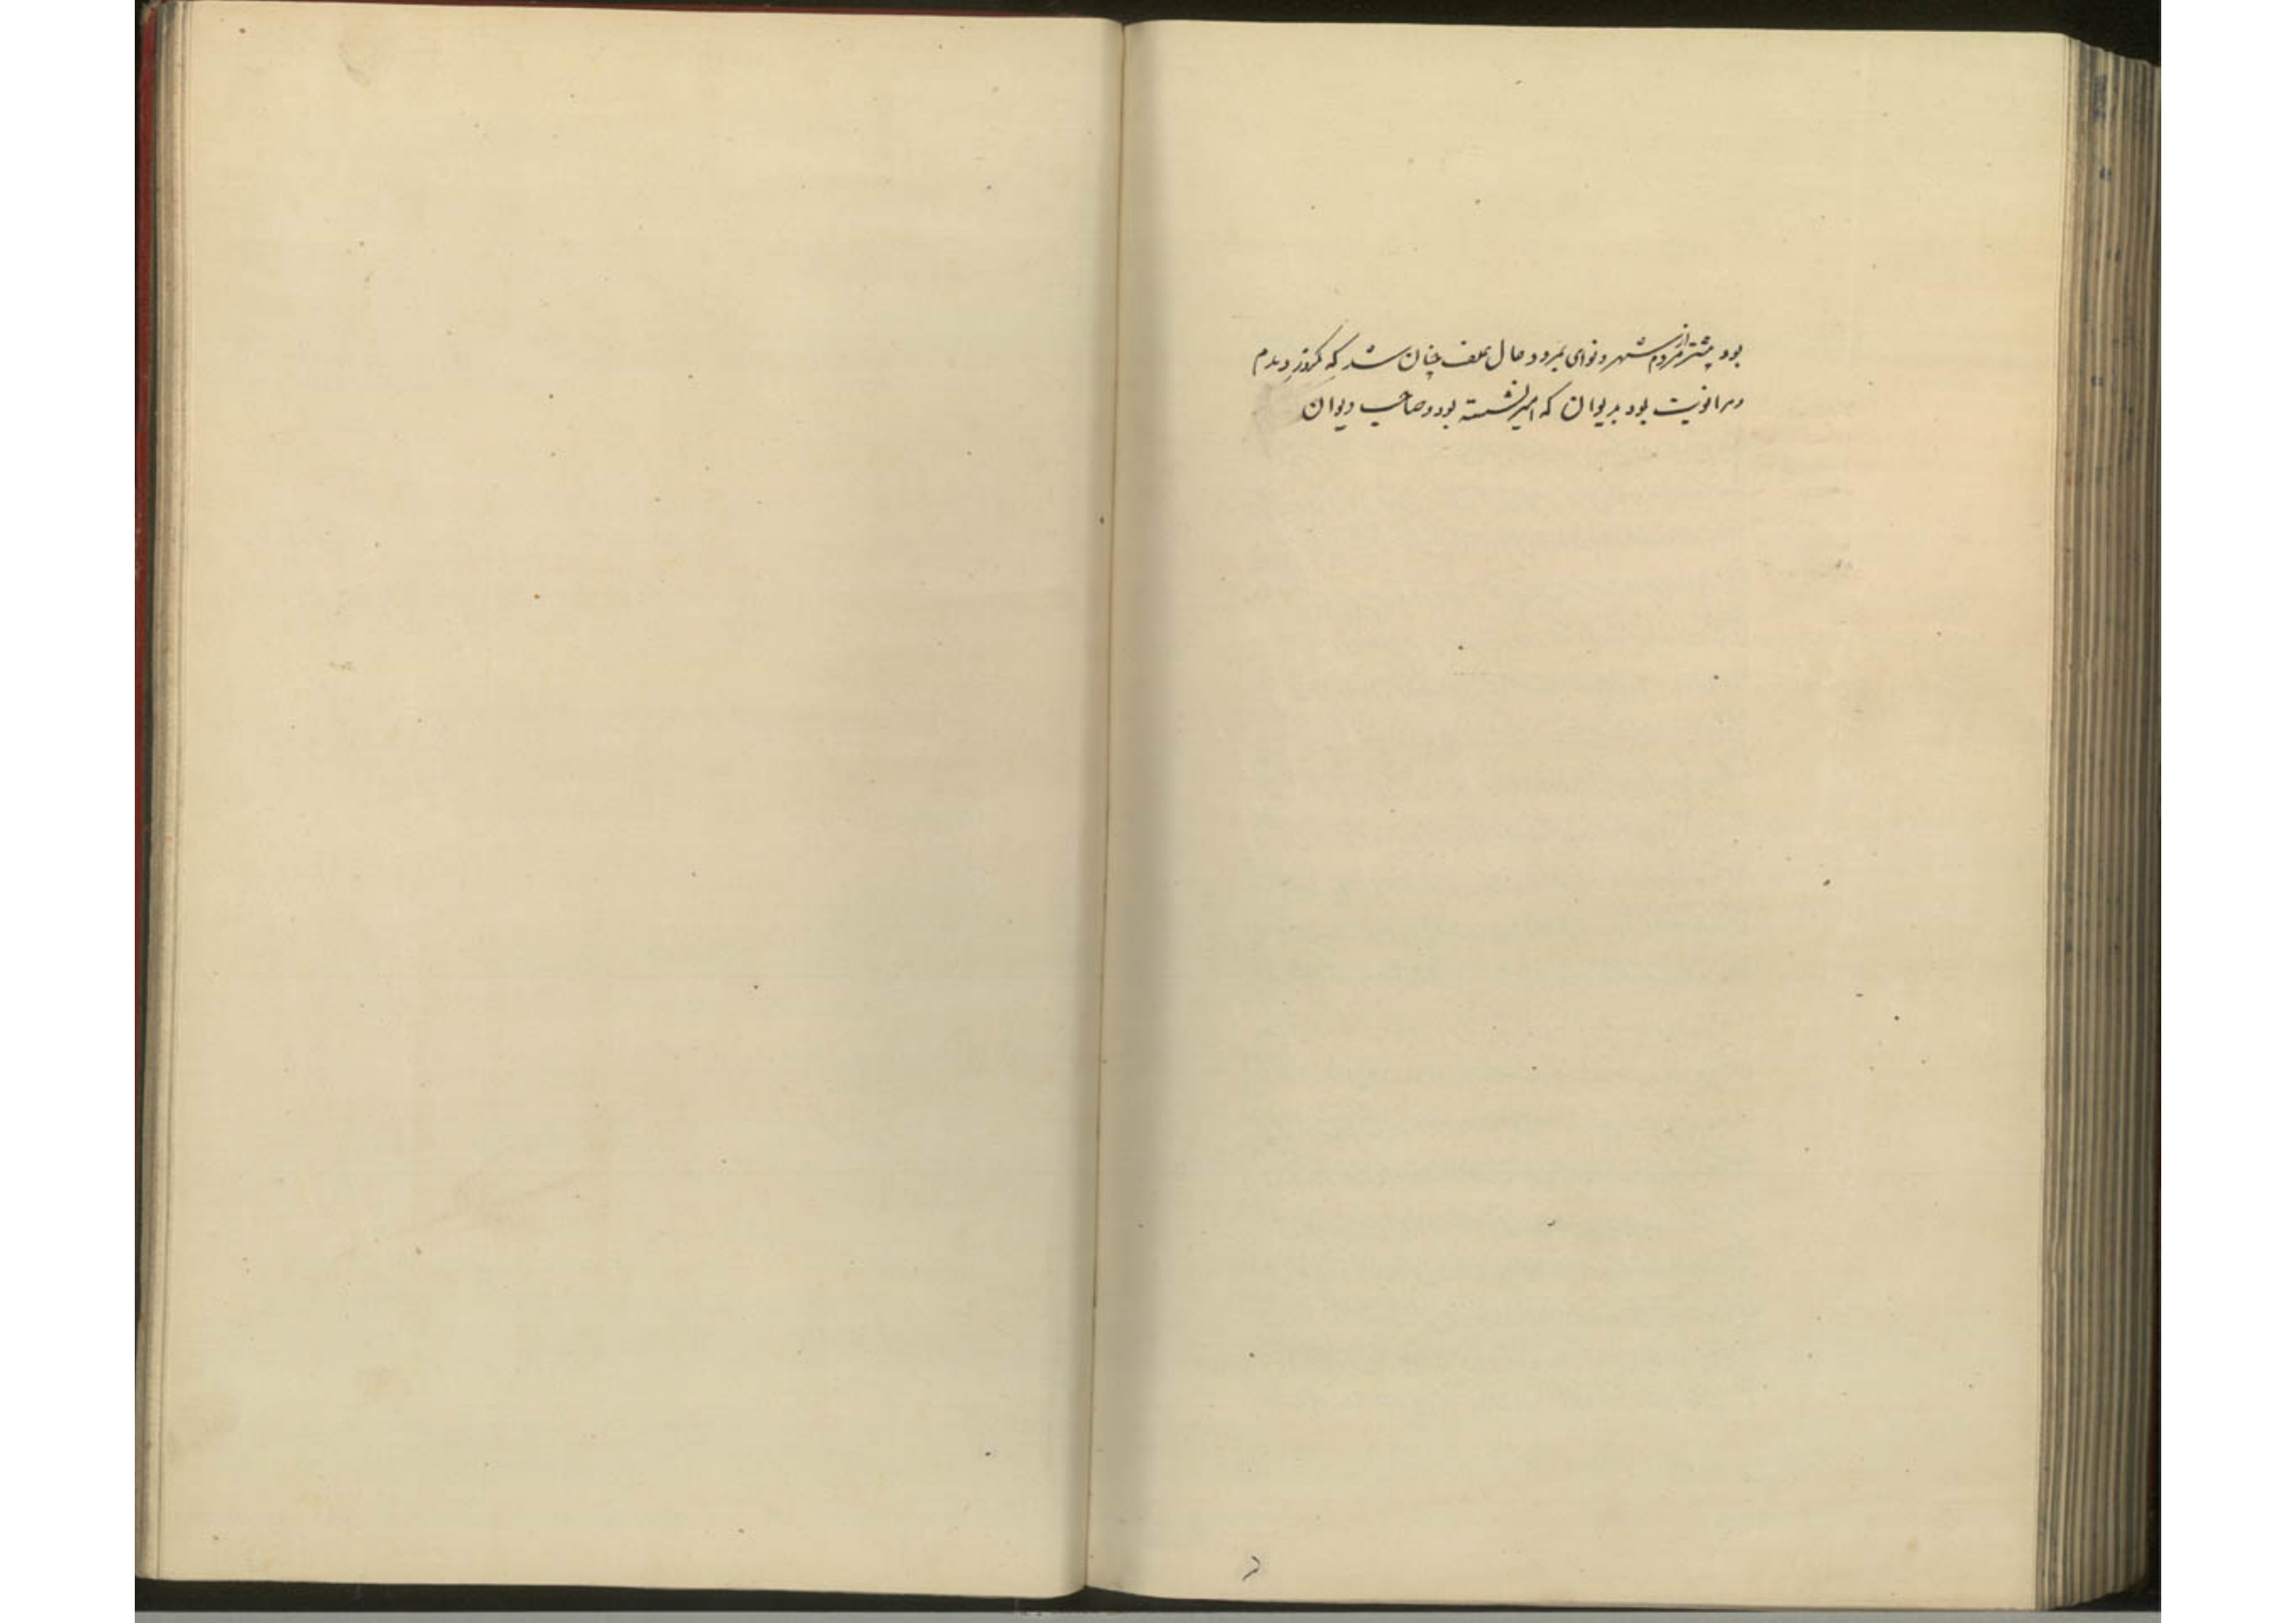 بود پیشتر از مردم شهر و نواحی بمرد و حال علف چنان شد که کروز دیدم
و مرا نوبت بود بدیوان که امیر نشسته بود و صاحب دیوان